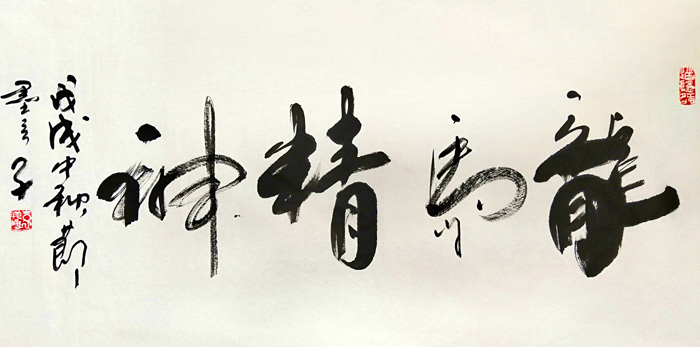 龍馬精神
戊戌中秋節
墨子